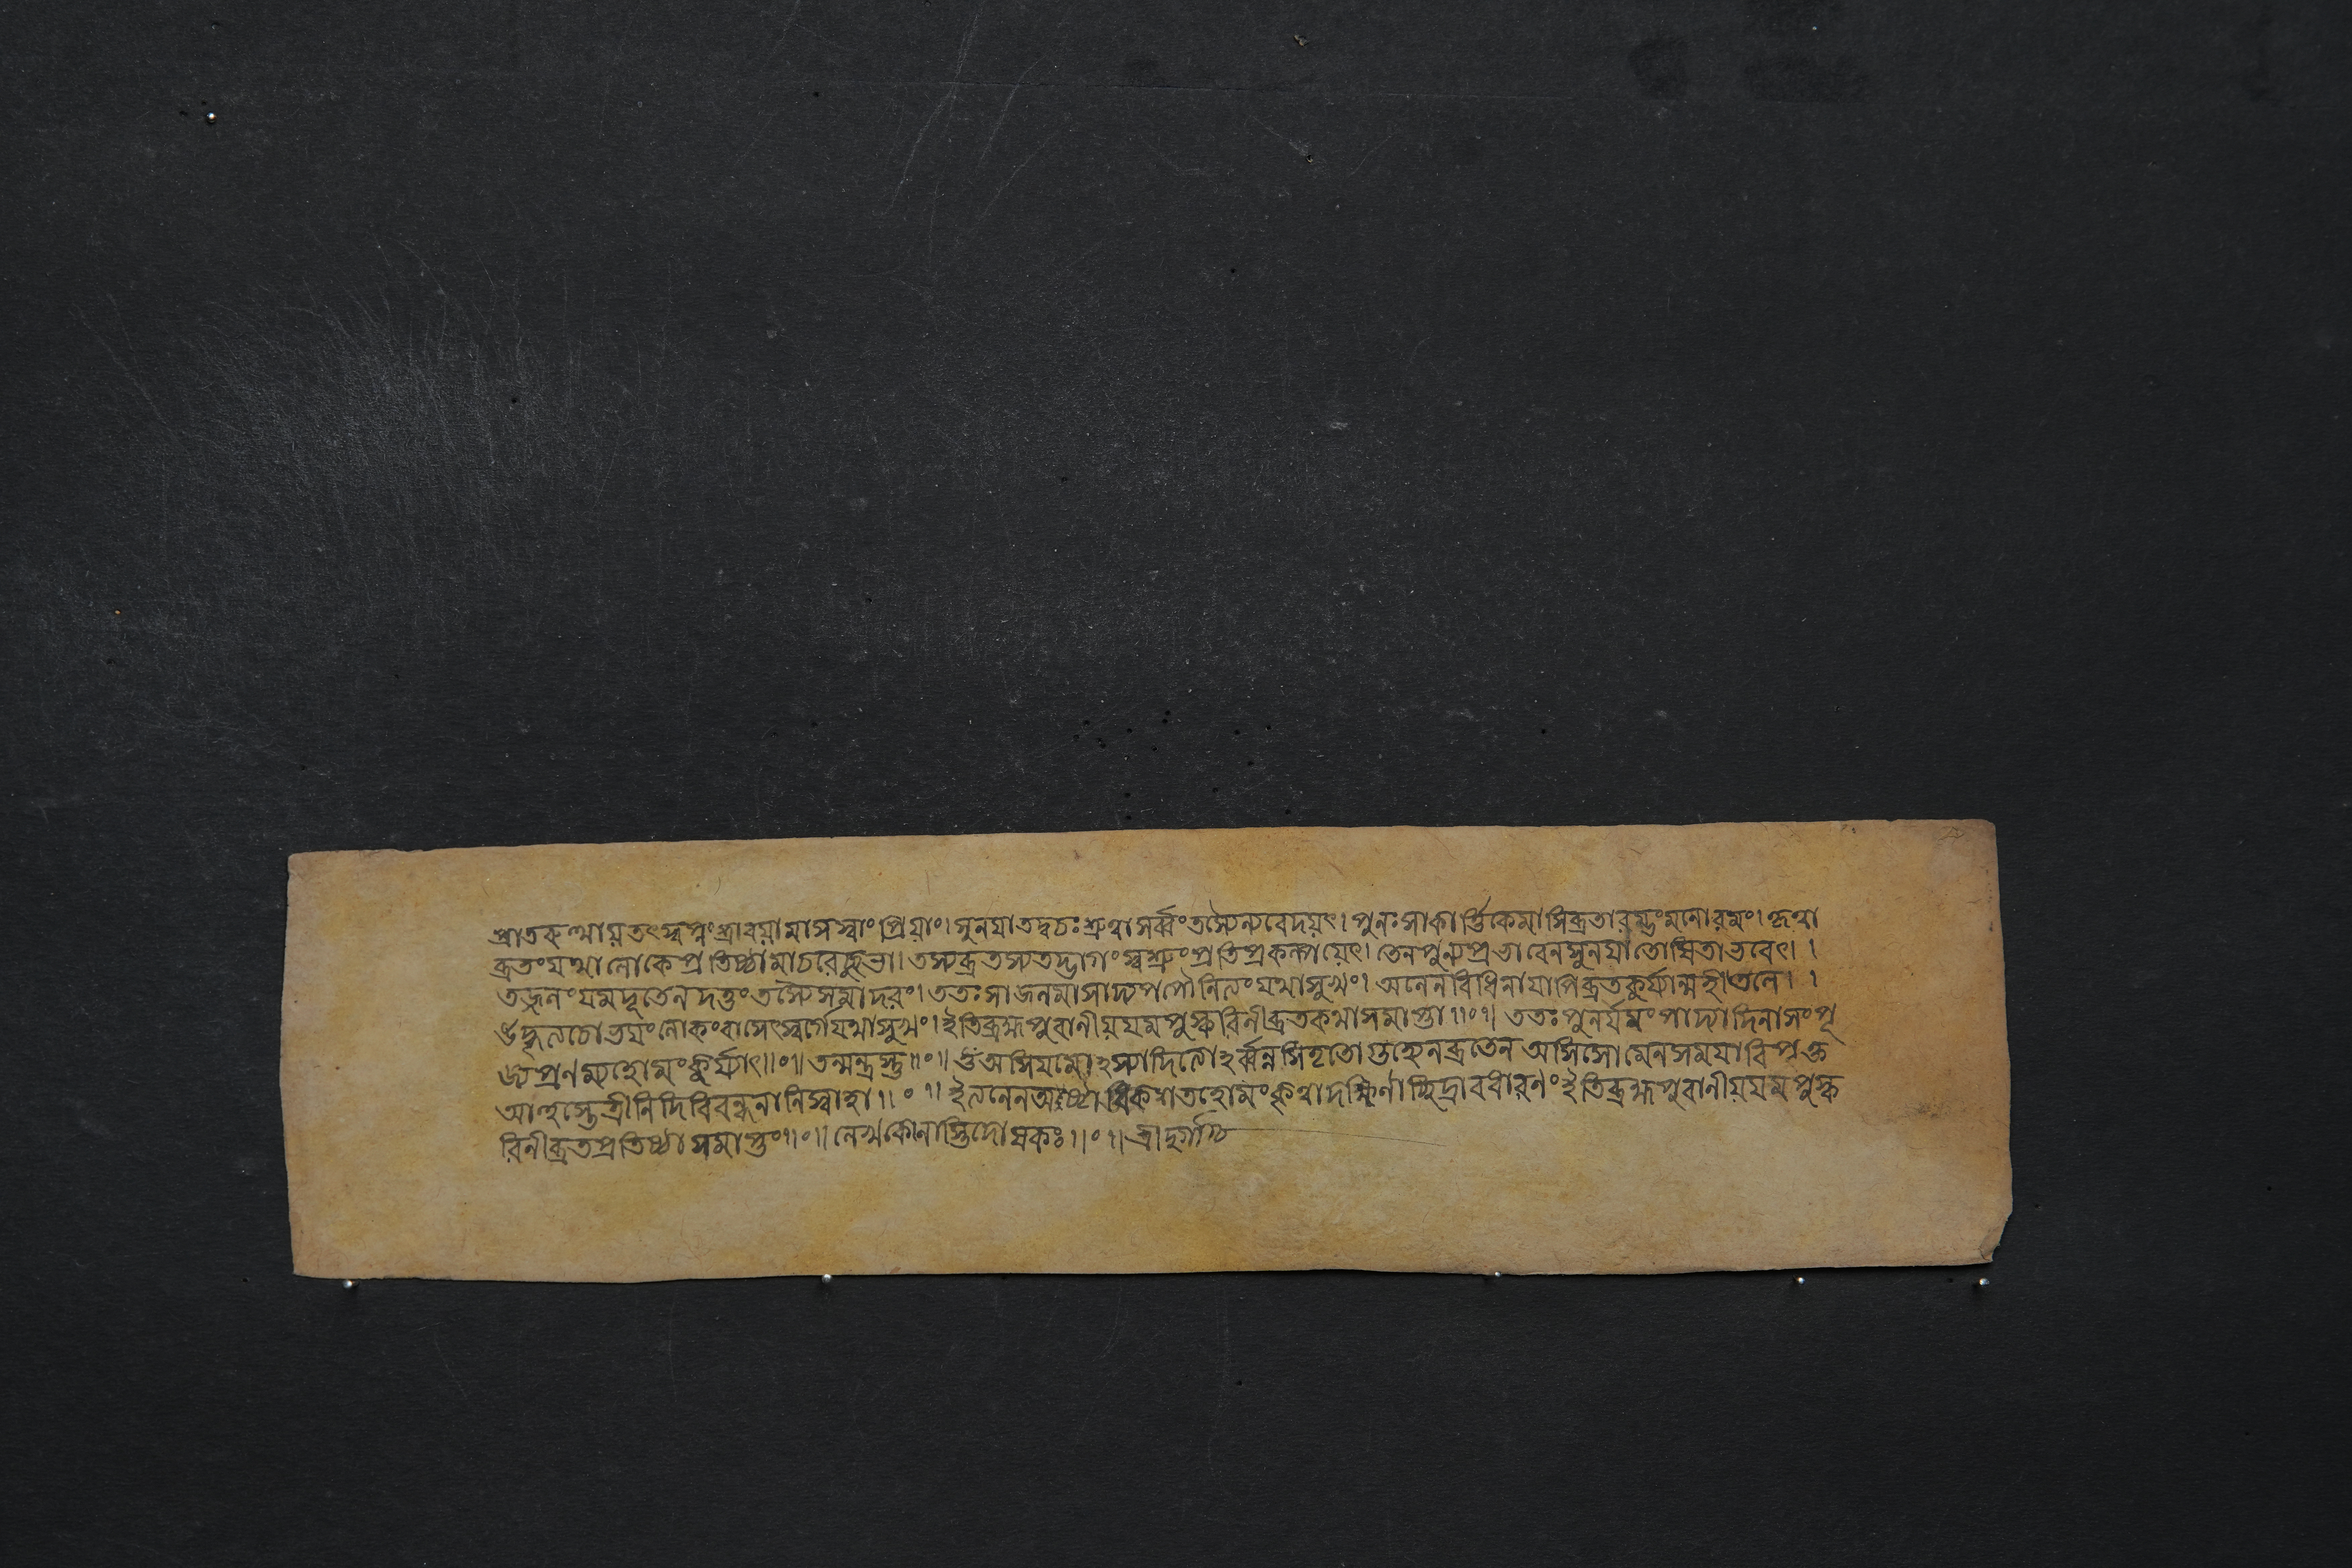 প্রাতরুত্থায়তৎস্বপ্নংশ্রাবয়ামাসস্বাংপ্রিয়াং।সুনযাতদ্বচঃশ্রুত্বাসর্ব্বংতস্যৈন্যবেদয়ৎ।পুনঃসাকার্ত্তিকেমাসিব্রতারম্ভংমনোরমং।কৃত্বা
ব্রতংযথালোকেপ্রতিষ্ঠামাচরেচ্ছুভা।তস্যব্রতস্যতদ্ভাগংস্বশ্রুংপ্রতিপ্রকল্পয়েৎ।তেনপুন্যপ্রভাবেনসুনযাতোষিতাভবেৎ।।
তজ্জলংযমদূতেনদত্তংতস্যৈসমাদরং।ততঃসাজলমাসাদ্যপপৌনিত্যংযথাসুখং।অনেনবিধিনাযাপিব্রতকুর্য্যান্মহীতলে।।
চোত্তমংলোকংবাসেৎস্বর্গেযথাসুখং।ইতিব্রহ্মপুরানীয়যমপুষ্করিনীব্রতকথাসমাপ্তা॥০॥ততঃপুনর্যমংপাদ্যাদিনাসংপূ
জ্যপ্রণম্যহোমংকুর্য্যাৎ॥০॥তন্মন্ত্রস্তু॥০॥ওঁঅসিযমোঽস্যাদিত্যোঽর্ব্বন্নসিতৃতোগুহ্যেনব্রতেনঅসিসোমেনসমযাবিপৃক্ত
আহুস্তেত্রীনিদিবিবন্ধনানিস্বাহা॥০॥ইত্যনেনঅষ্টাধিকশতহোমংকৃত্বাদক্ষিণাচ্ছিদ্রাবধারণংইতিব্রহ্মপুরানীয়যমপুষ্ক
রিনীব্রতপ্রতিষ্ঠাসমাপ্তং॥০॥লেখকোনাস্তিদোষকঃ॥০॥শ্রীদুর্গা